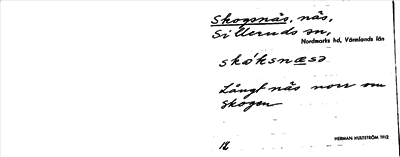 Skogsnäs, näs,
Silleruds sn,
Nordmarks hd, Värmlands län
skóksnæsə
Långt näs norr om
skogen
HERMAN HULTSTRÖM 1912